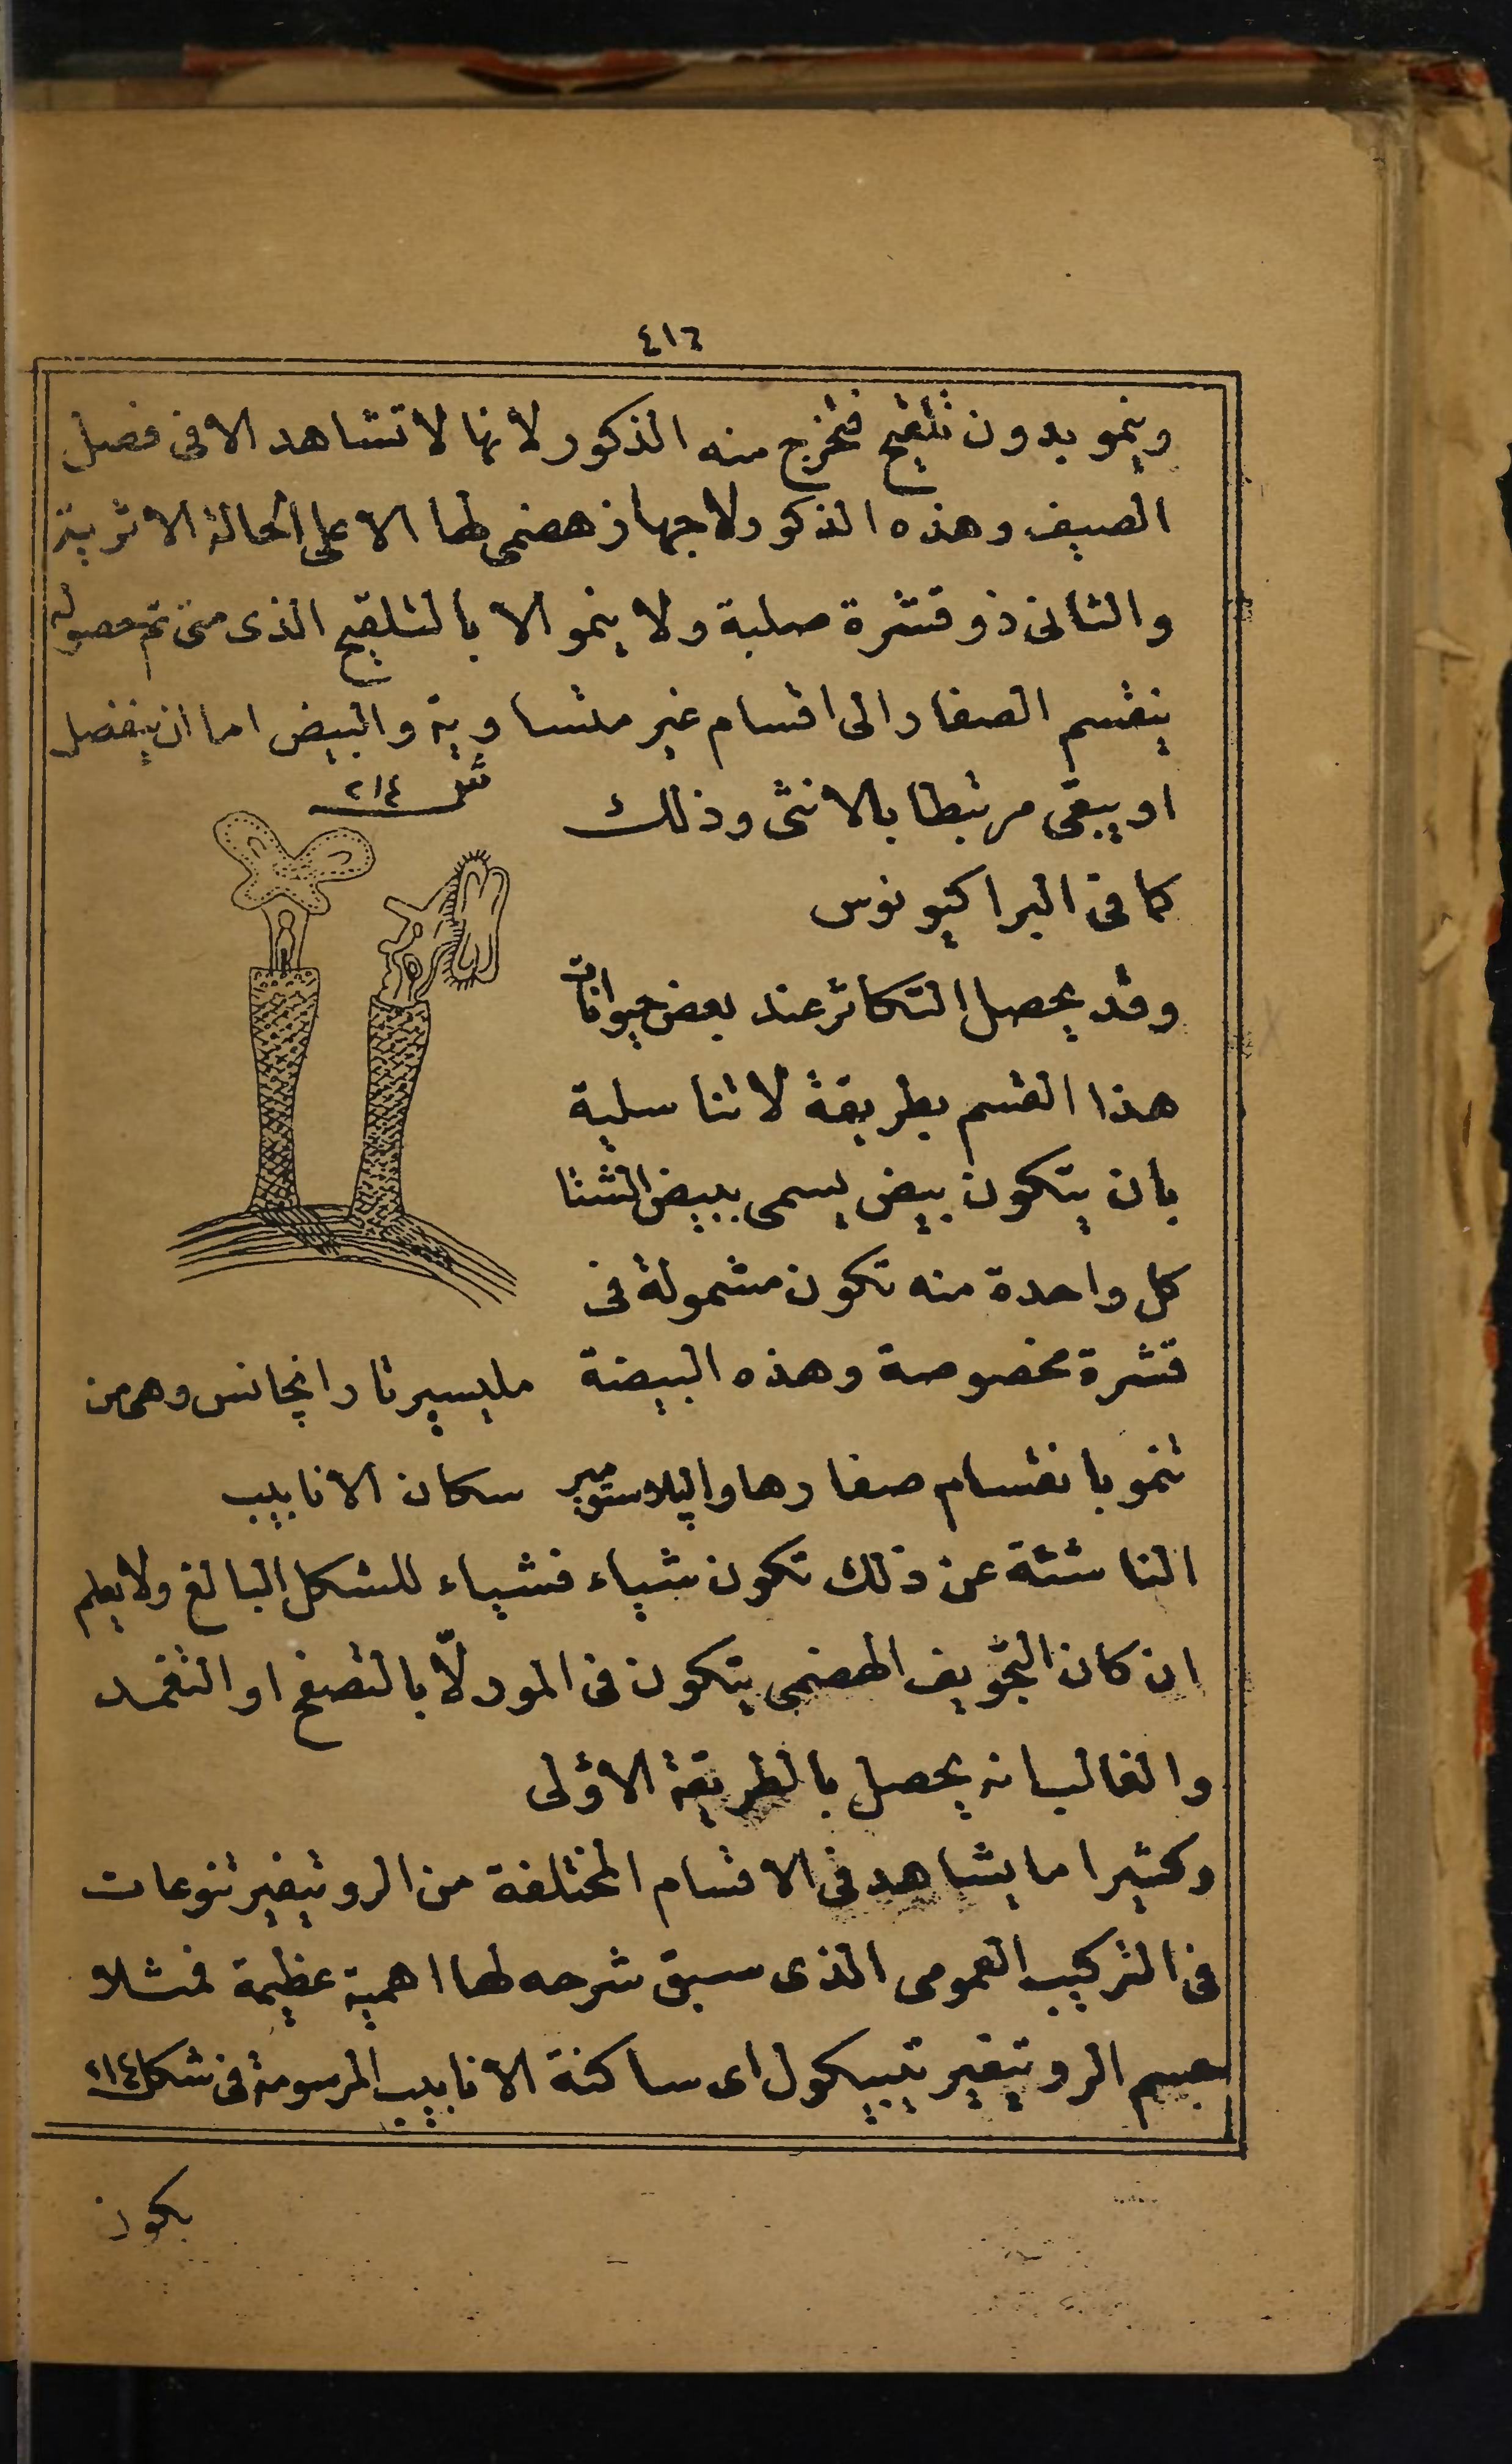 ٤١٦
وينمو بدون تلقيح فتخرج منه الذكور لانها لا تشاهد الا فى فصل
الصيف وهذه الذكور لا جهاز هضمى لها الا على الحالة الاثرية
والثانى ذو قشرة صلبة ولا ينمو الا بالتلقيح الذى متى تم حصوله
ينقسم الصفار الى اقسام غير متساوية والبيض اما ان ينفصل
او يبقى مرتبطا بالانثى وذلك
كما فى البراكيونوس
وقد يحصل التكاثر عند بعض حيوانات
هذا القسم بطريقة لا تناسلية
بان يتكون بيض يسمى ببيض الشتا
كل واحدة منه تكون مشمولة فى
قشرة مخصوصة وهذه البيضة
تنمو بانقسام صفارها والپلاستومير
شكل ٢١٤
مليسيرتا رانجانس وهى من
سكان الانابيب
الناشئة عن ذلك تكون شياء فشياء للشكل البالغ ولا يعلم
ان كان التجويف الهضمى يتكون فى المورلّا بالتصفح او التغمد
والغالب انه يحصل بالطريقة الاولى
وكثيرا ما يشاهد فى الاقسام المختلفة من الروتيفير تنوعات
فى التركيب العمومى الذى سبق شرحه لها اهمية عظيمة فمثلا
جسم الروتيفير تيبيكول اى ساكنة الانابيب المرسومة فى شكل ٢١٤
يكون